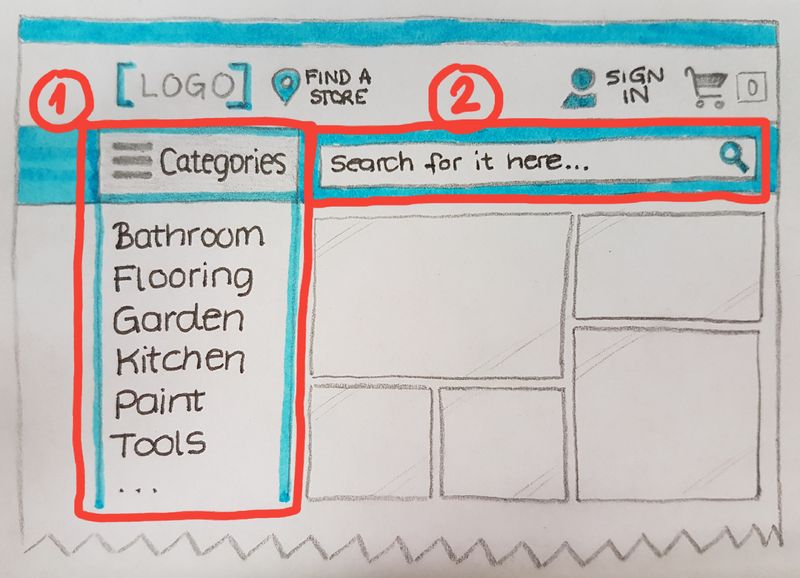 [LOGO]
FIND A
STORE
SIGN
IN
0
1
2
Categories
Search for it here...
Bathroom
Flooring
Garden
Kitchen
Paint
Tools
...